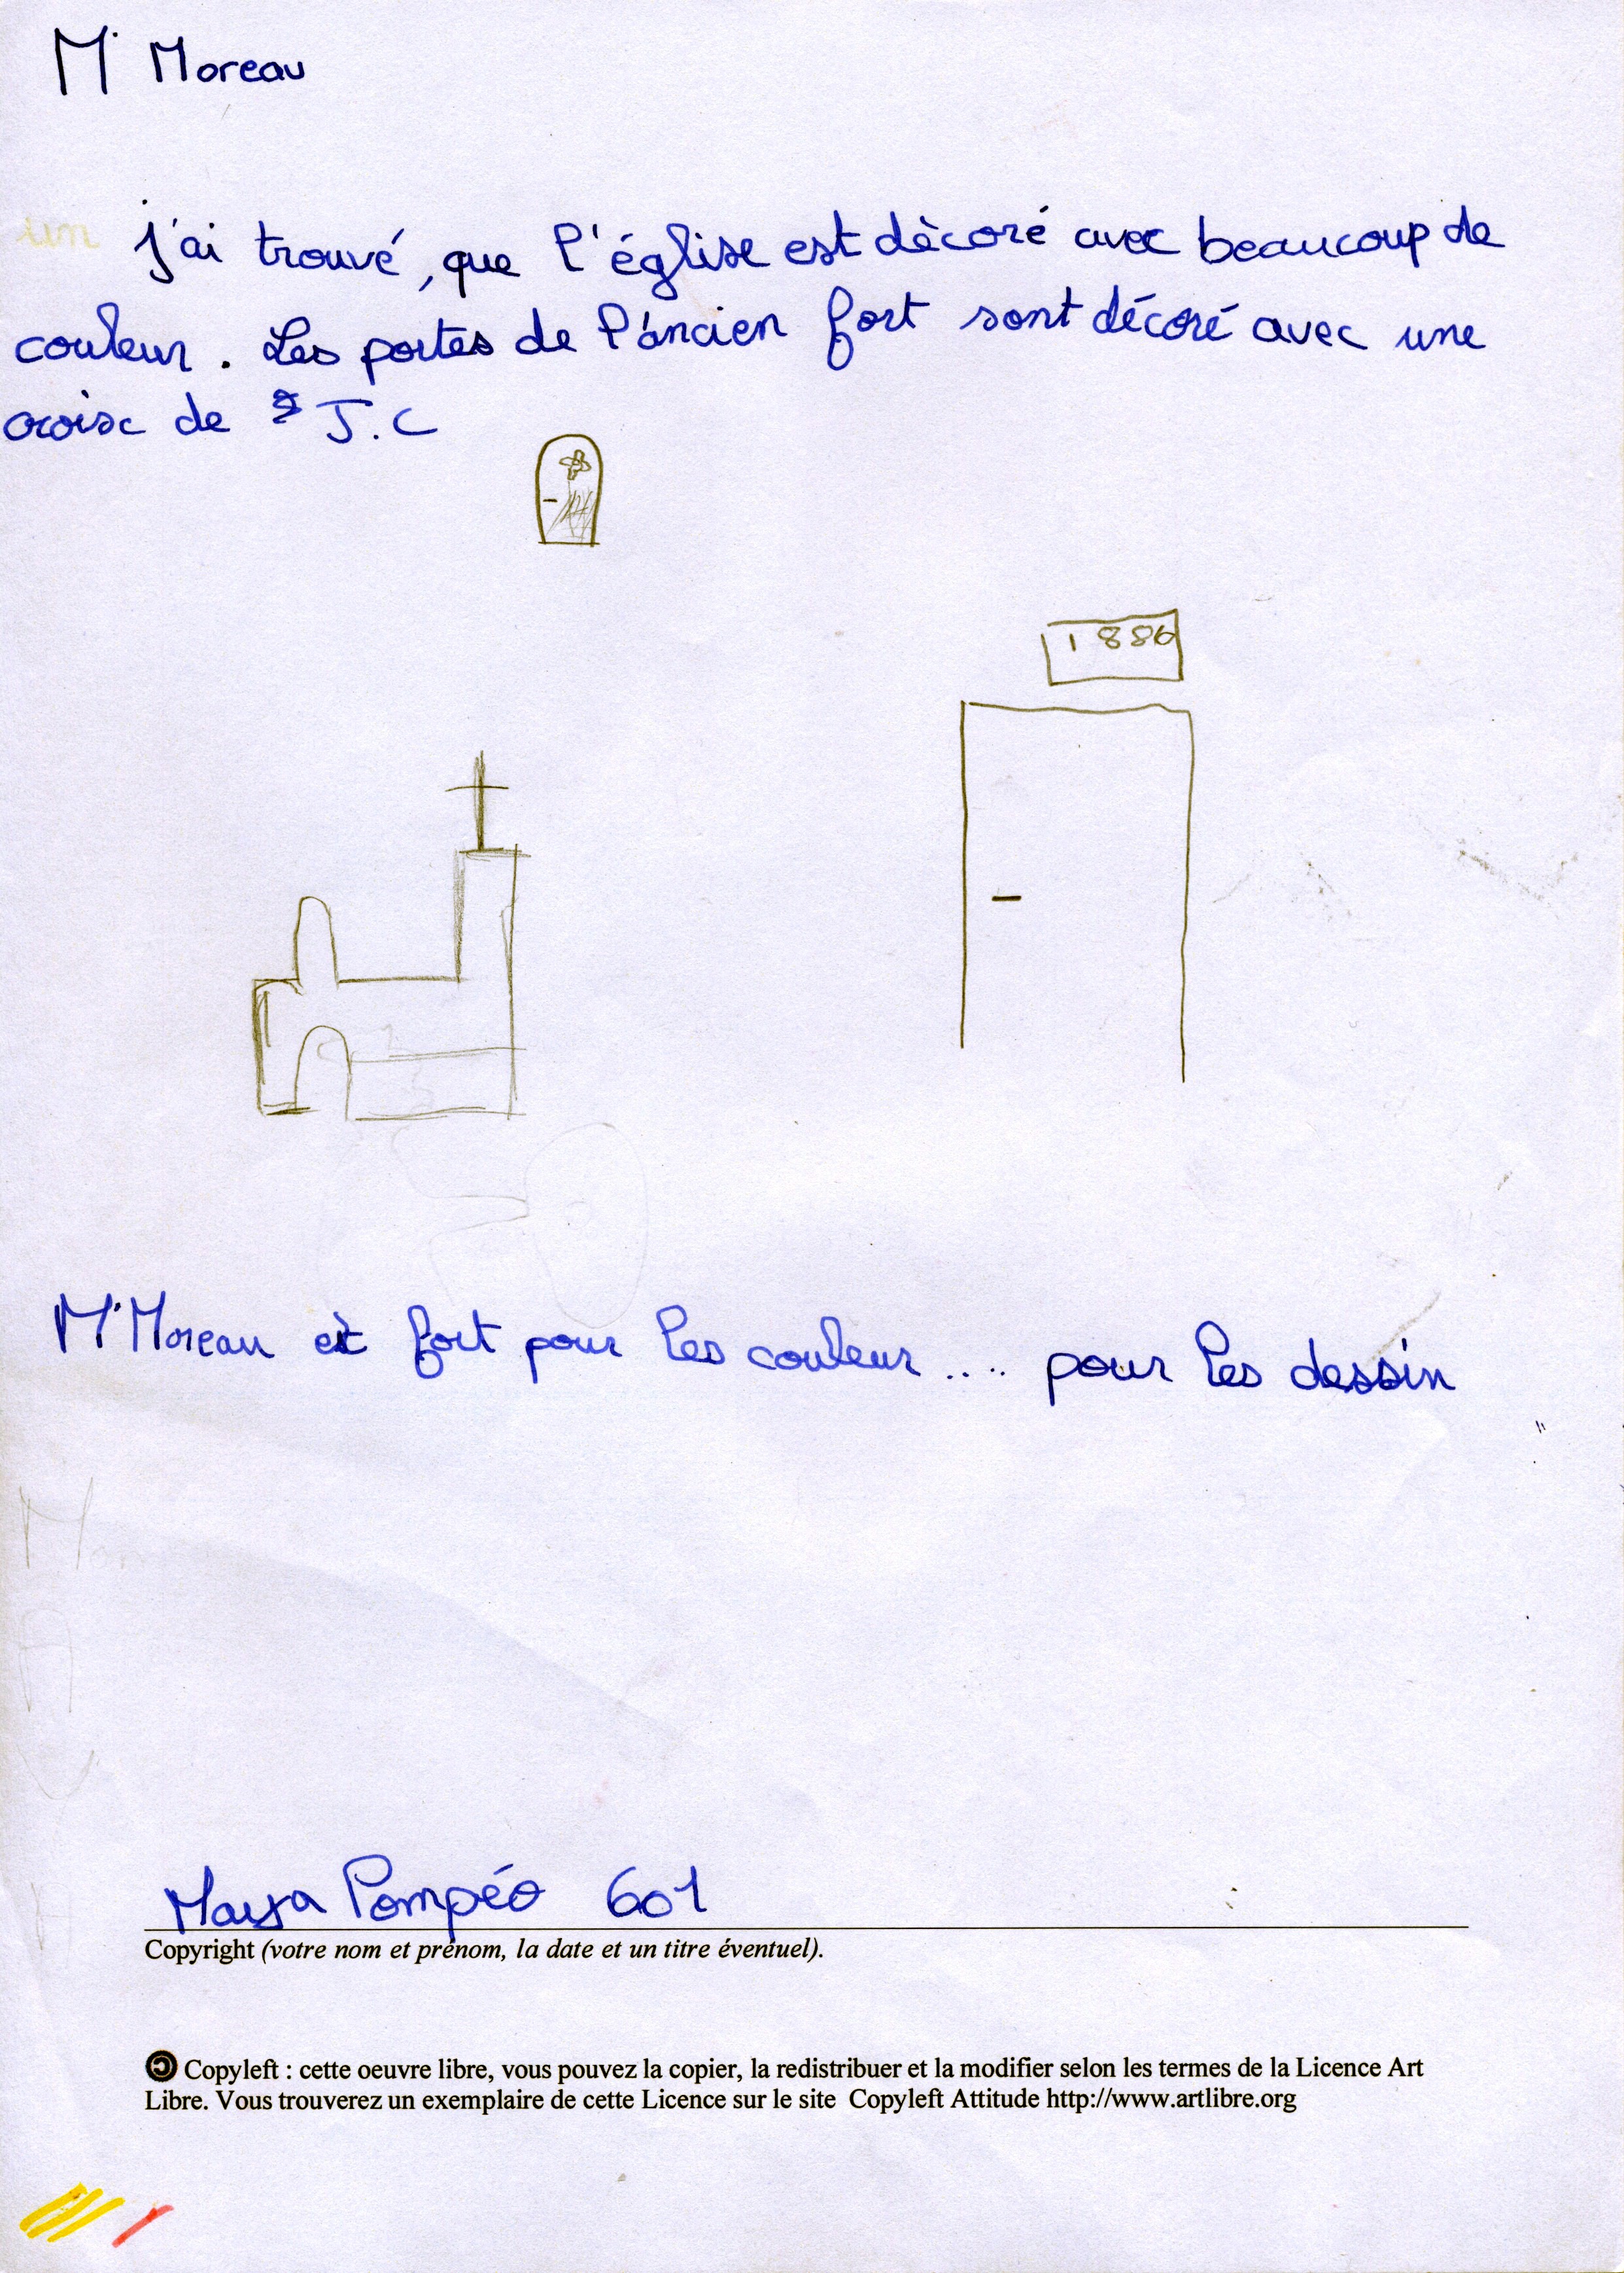 M. Moreau
j'ai trouvé, que l'église est dècoré avec beaucoup de
couleur. Les portes de l'ancien fort sont décoré avec une
croise de J.C
1886
M. Moreau est fort pour les couleur.... pour les dessin
Maysa Pompéo 601
Copyright (votre nom et prénom, la date et un titre éventuel).
Copyleft : cette oeuvre libre, vous pouvez la copier, la redistribuer et la modifier selon les termes de la Licence Art
Libre. Vous trouverez un exemplaire de cette Licence sur le site Copyleft Attitude http://www.artlibre.org